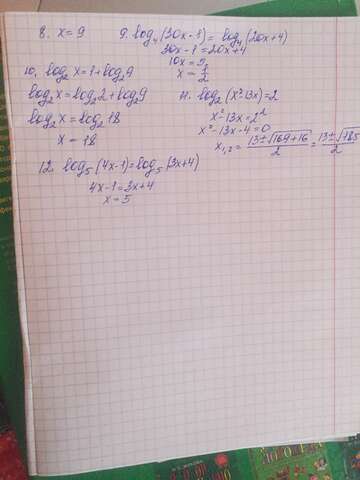 8. x = 9
9. log₄(30x-1) = log₄(20x+4)
30x-1 = 20x+4
10x = 5
x = 1/2
10. log₂ x = 1 + log₂ 9
log₂ x = log₂ 2 + log₂ 9
log₂ x = log₂ 18
x = 18
11. log₂(x²-13x) = 2
x² - 13x = 2²
x² - 13x - 4 = 0
x₁,₂ = (13±√169+16)/2 = (13±√185)/2
12. log₅(4x-1) = log₅(3x+4)
4x-1 = 3x+4
x = 5